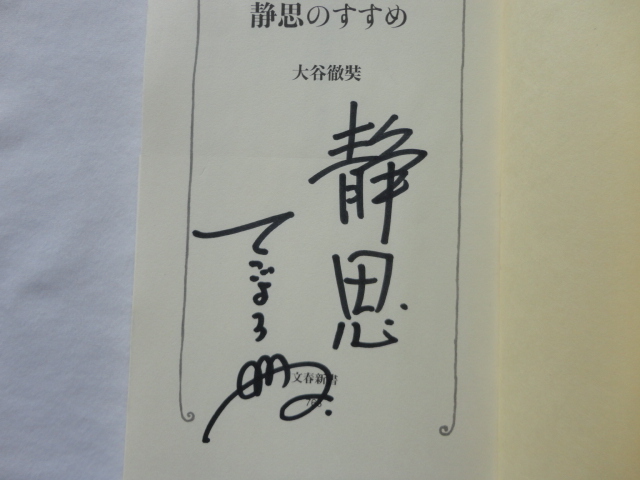 静思のすすめ
大谷徹奘
静思
てつじょう
文春新書